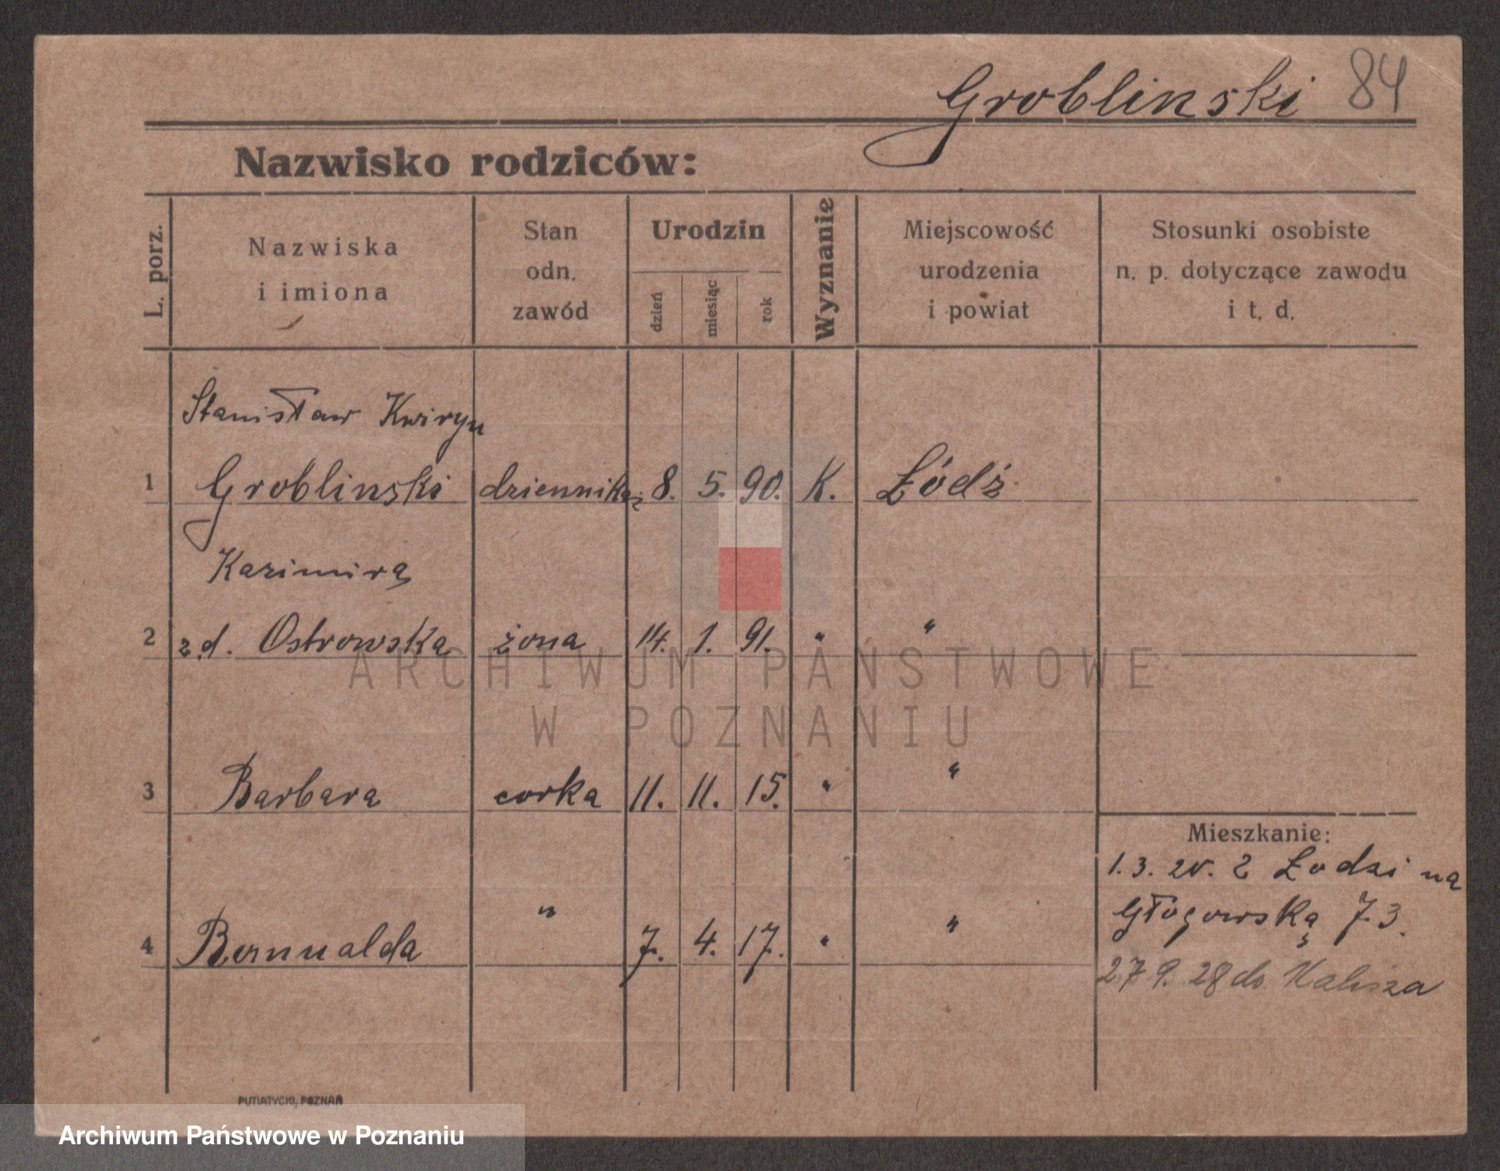 Groblinski 84
Nazwisko rodziców:
L. porz.
Nazwiska
i imiona
Stan
odn.
zawód
Urodzin
dzień
miesiąc
rok
Wyznanie
Miejscowość
urodzenia
i powiat
Stosunki osobiste
n. p. dotyczące zawodu
i t. d.
Stanisław Kwiryn
1 Groblinski dziennikaz 8. 5. 90. K. Łódź
Kazimira
2 z d. Ostrowska żona 14. 1. 91. " "
3 Barbara corka 11. 11. 15. " "
Mieszkanie:
1. 3. 20. z Łodzi na
Głogowską 73.
4 Romualda " 7. 4. 17. " "
27 9. 28 do Kalisza
ARCHIWUM PAŃSTWOWE
W POZNANIU
PUTIATYCKI, POZNAŃ
Archiwum Państwowe w Poznaniu